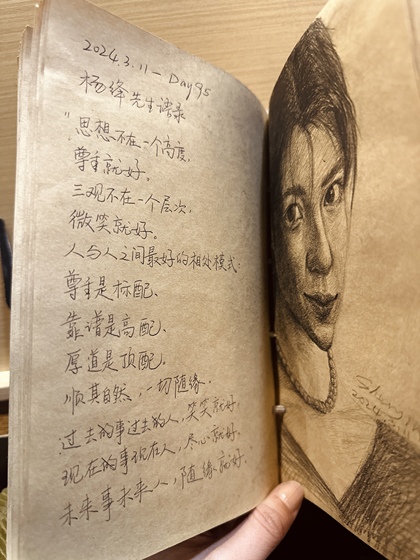 2024.3.11 - Day95
杨绛先生语录
"思想不在一个高度,
尊重就好.
三观不在一个层次,
微笑就好.
人与人之间最好的相处模式:
尊重是标配、
靠谱是高配、
厚道是顶配.
顺其自然,一切随缘.
过去的事过去的人,笑笑就好.
现在的事现在人,尽心就好.
未来事未来人,随缘就好.